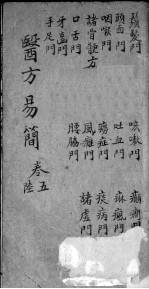 鬚髮門
頭面門
咽喉門
諸骨鯁方
口舌門
牙齒門
手足門
咳嗽門
吐血門
瘧症門
風癱門
腰脇門
癲癇門
麻瘋門
痰病門
諸虛門
醫方易簡 卷五
陸